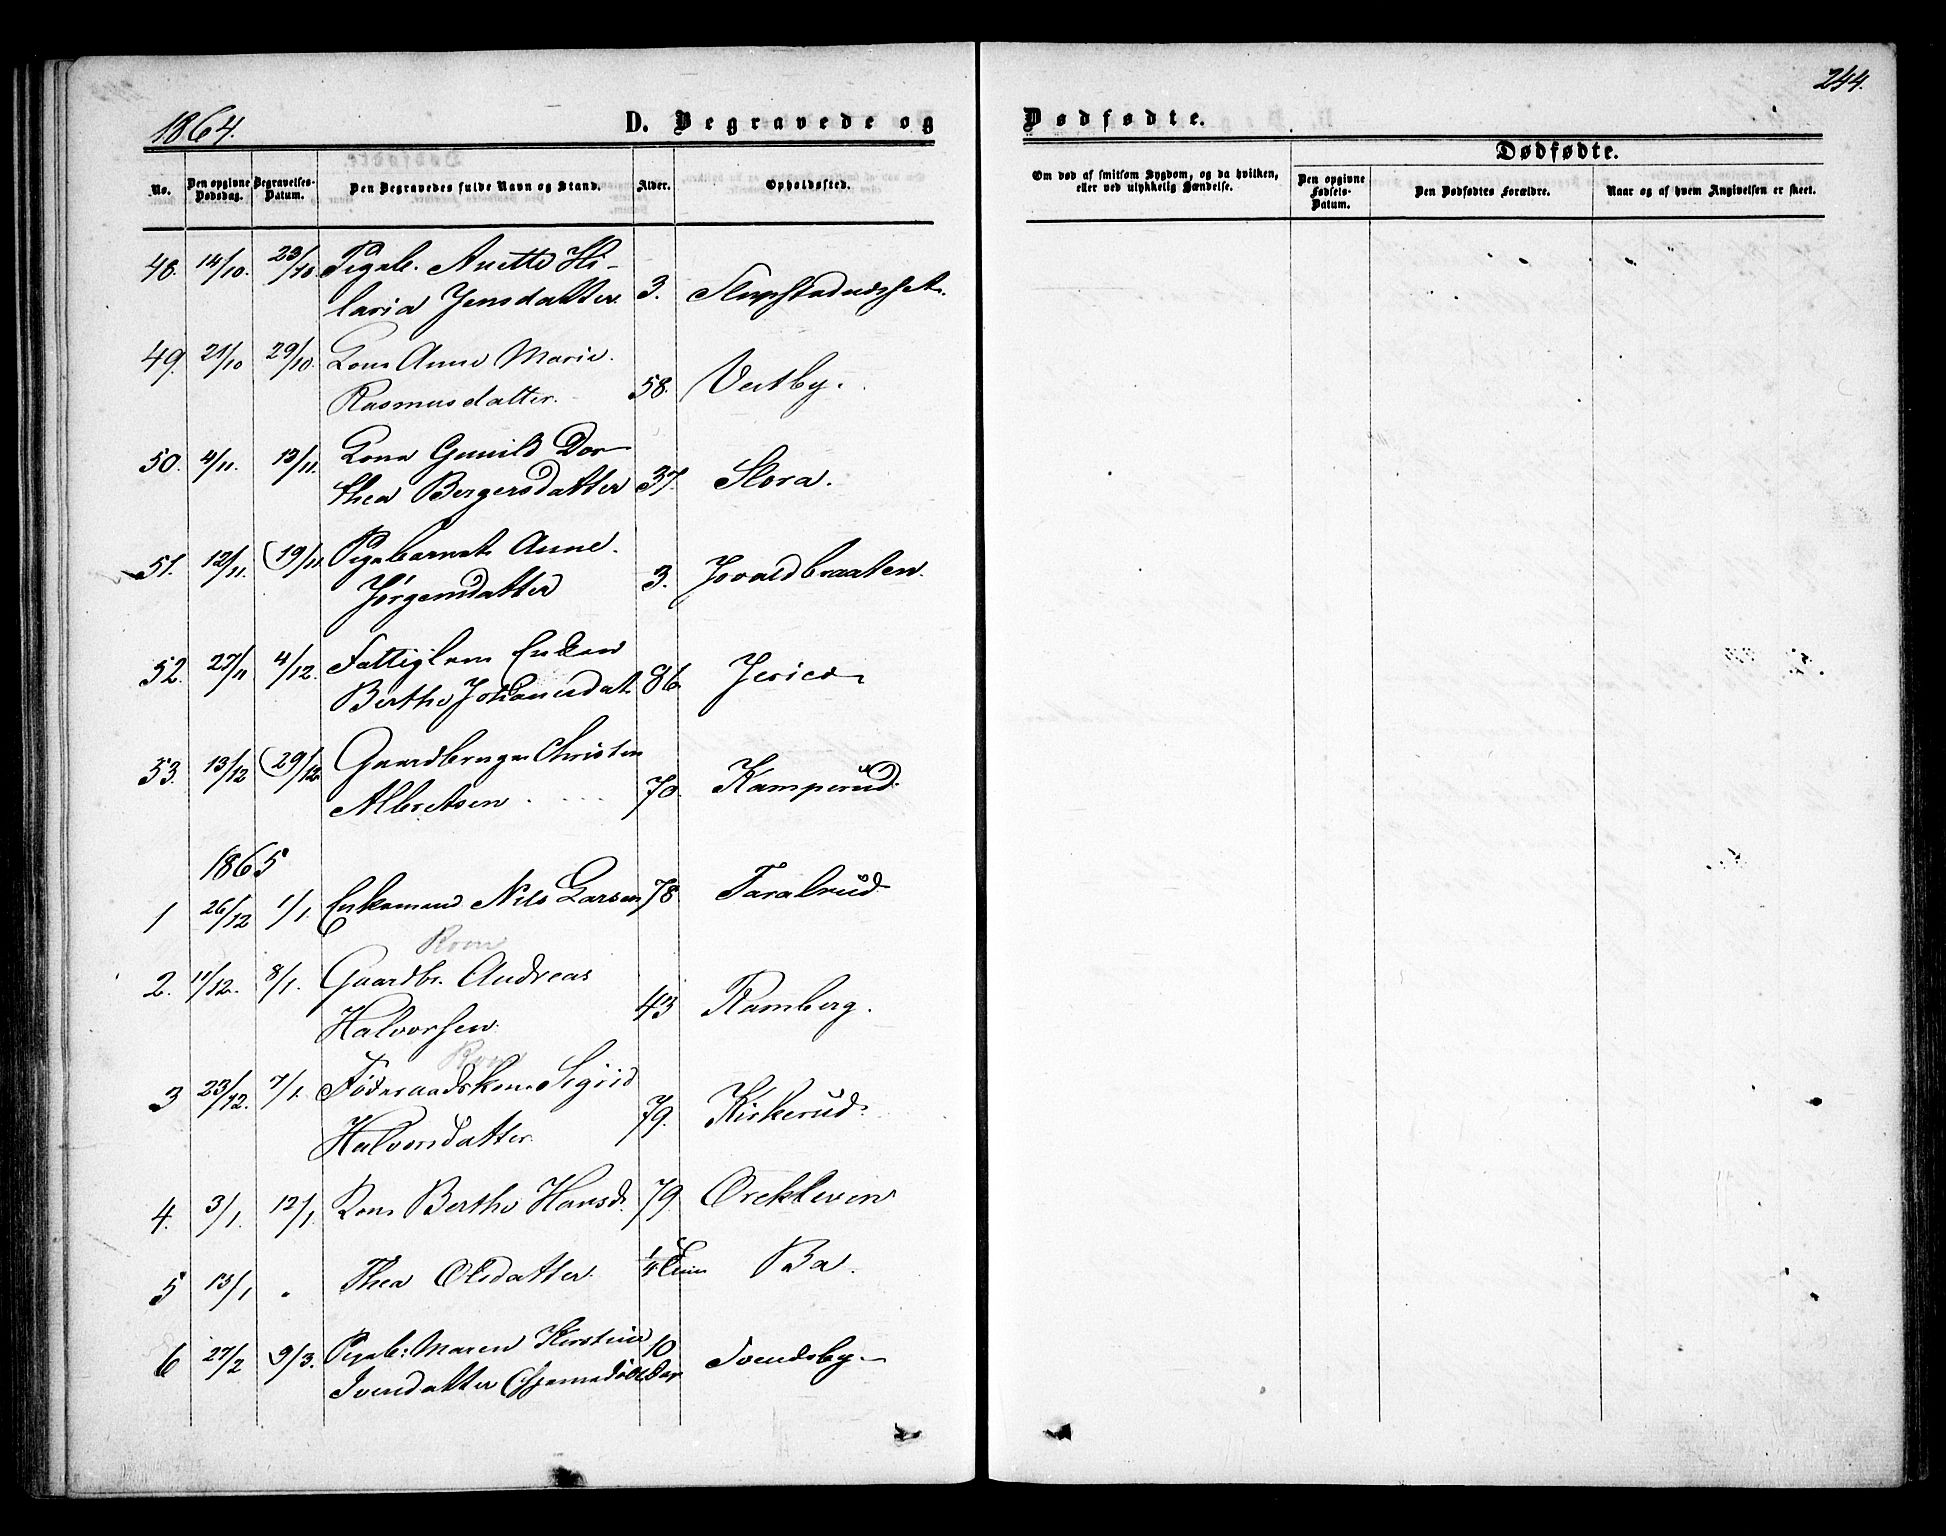 244.
1864.
D. Begravede og
Dødfødte.
No.
Den opgivne Dødsdag.
Begravelses-Datum.
Den Begravedes fulde Navn og Stand.
Alder.
Opholdssted.
Om død af smitsom Sygdom, og da hvilken, eller ved ulykkelig Hændelse.
Dødfødte.
Den opgivne Fødsels-Datum.
Den Dødfødtes Forældre.
Naar og af hvem Angivelsen er skeet.
48. 14/10. 23/10. Pigeb. Anette Hi-
laria Jensdatter 3.
49. 21/10 29/10. Kone Anne Marie
Rasmusdatter. 58. Vestby.
50. 4/11. 13/11. Kone Gunild Dor-
thea Bergersdatter 37. Slora.
51. 12/11. (19/11 Pigebarnet Anne
Jörgensdatter 3. Jovaldbraaten.
52. 27/11 4/12. Fattiglem Enken
Berthe Johannesdat. 86 Jerico
53. 13/12 (29/12 Gaardbruger Christen
Albretsen 70. Kamperud.
1865
1 26/12 1/1. Enkemand Nils Larsen 78 Taralrud
2. 11/12. 8/1. Gaardbr. Andreas
Halvorsen. 43 Ramberg.
3 23/12. 7/1. Föderaadskone Sigrid
Halvorsdatter. 79. Kirkerud.
4. 3/1. 12/1. Kone Berthe Hansd. 79 Orekleven
5 13/1 Thea Olsdatter. 1/4 Time Ba.
6 27/2 9/3. Pigeb: Maren Kirstine 10
Iversdatter Dage Svendsby